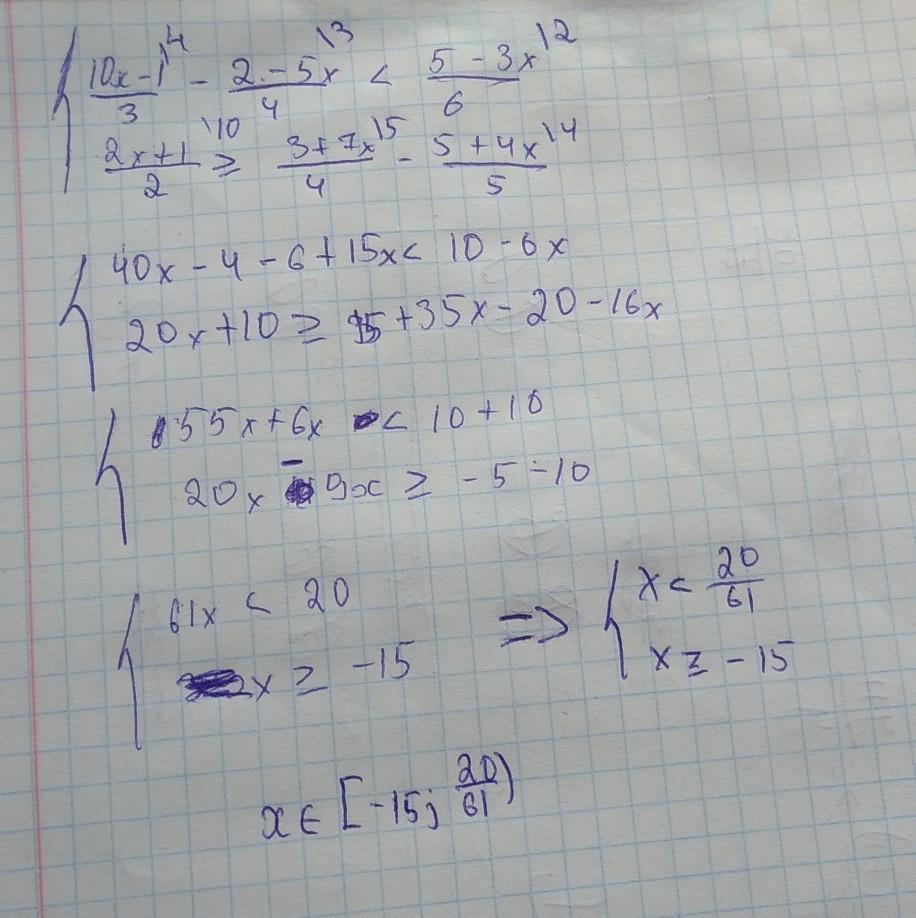 { (10x-1)/3 \4 - (2-5x)/4 \3 < (5-3x)/6 \2
(2x+1)/2 \10 ≥ (3+7x)/4 \5 - (5+4x)/5 \4
{ 40x-4-6+15x< 10-6x
20x+10 ≥ 15+35x-20-16x
{ 55x+6x < 10+10
20x - 19x ≥ -5-10
{ 61x < 20 => { x < 20/61
x ≥ -15 x ≥ -15
x ∈ [-15; 20/61)